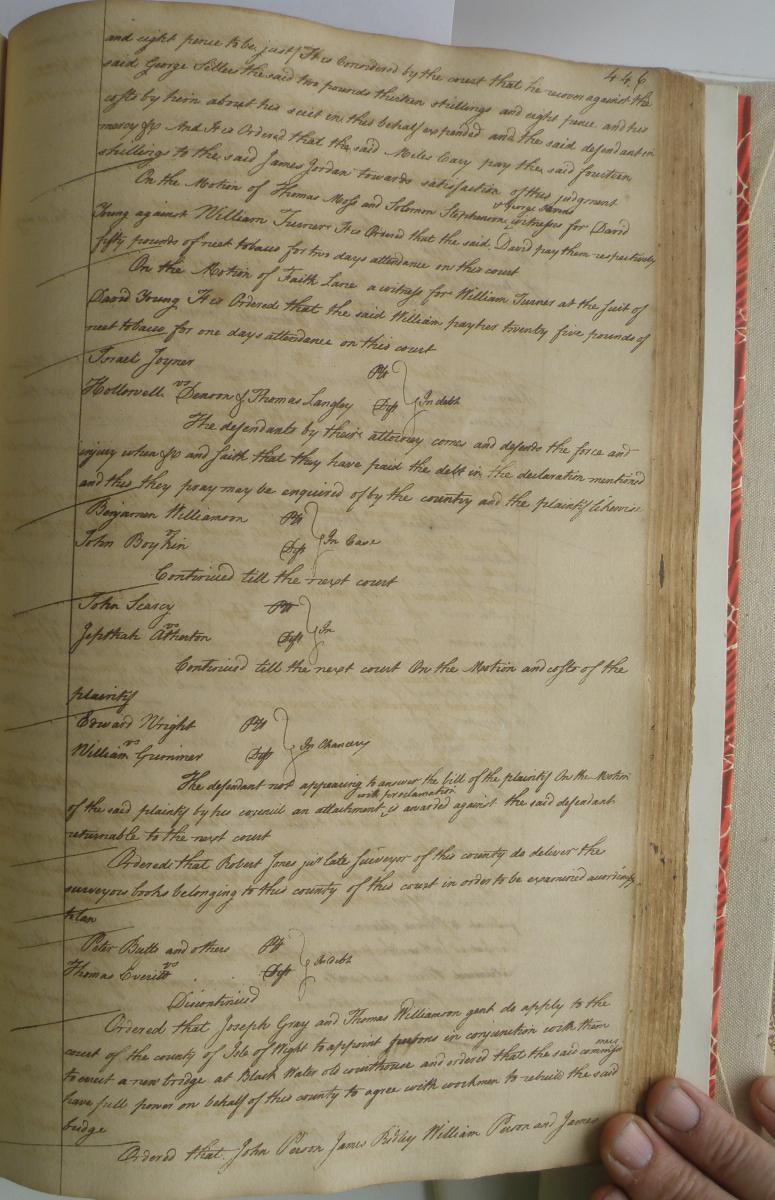 446
and eight pence to be just / It is Considered by the court that he recover against the
said George Sellers the said two pounds thirteen shillings and eight pence and his
costs by him about his suit in this behalf expended and the said defendant in
mercy &c And It is Ordered that the said Miles Cary pay the said fourteen
shillings to the said James Jordan towards satisfaction of this judgment
On the Motion of Thomas Moss and Solomon Stephenson & George witnesses for David
Young against William Turner It is Ordered that the said David pay them respectively
fifty pounds of neet tobacco for two days attendance on this court
On the Motion of Faith Lane a witness for William Turner at the suit of
David Young It is Ordered that the said William pay her twenty five pounds of
neet tobacco for one days attendance on this court
Israel Joyner Plt
vs In debt
Hollowell Denson & Thomas Langley Deft
The defendants by their attorney comes and defends the force and
injury when &c and saith that they have paid the debt in the declaration mentioned
and this they pray may be enquired of by the country and the plaintif likewise
Benjamin Williamson Plt
vs In Case
John Boykin Deft
Continued till the next court
John Searcy Plt
vs In
Jepthah Atherton Deft
Continued till the next court On the Motion and costs of the
plaintif
Edward Wright Plt
vs In Chancery
William Gummer Deft
The defendant not appearing to answer the bill of the plaintif On the Motion
with proclamation
of the said plaintif by his council an attachment is awarded against the said defendant
returnable to the next court
Ordered that Robert Jones junr late Surveyor of this county do deliver the
surveyors books belonging to this county of this court in order to be examined
Peter Butts and others Plt
vs In debt
Thomas Everitt Deft
Discontinued
Ordered that Joseph Gray and Thomas Williamson gent do apply to the
court of the county of Isle of Wight to appoint persons in conjunction with them
to erect a new bridge at Black Water old courthouse and ordered that the said
have full power on behalf of this county to agree with workmen to rebuild the said
bridge
Ordered that John Person James Ridley William Person and James